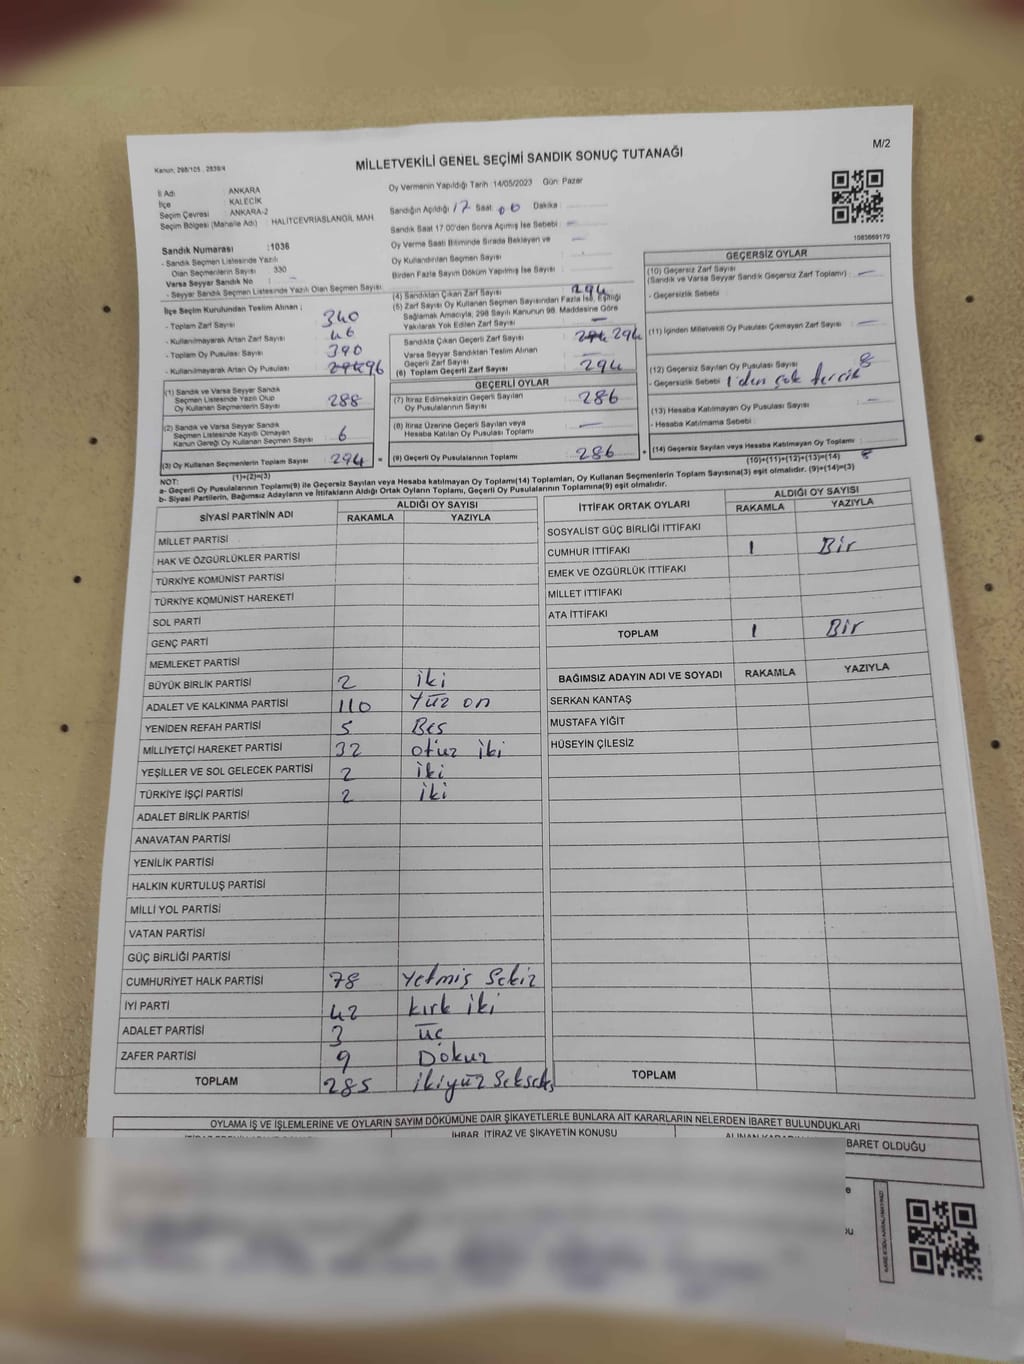 M/2
Kanun; 298/105 , 2839/4
MİLLETVEKİLİ GENEL SEÇİMİ SANDIK SONUÇ TUTANAĞI
İl Adı : ANKARA
İlçe : KALECİK
Seçim Çevresi : ANKARA-2
Seçim Bölgesi (Mahalle Adı) : HALİTCEVRİASLANGİL MAH.
Sandık Numarası :1036
- Sandık Seçmen Listesinde Yazılı
Olan Seçmenlerin Sayısı : 330
Varsa Seyyar Sandık No : –
- Seyyar Sandık Seçmen Listesinde Yazılı Olan Seçmen Sayısı
Oy Vermenin Yapıldığı Tarih :14/05/2023 Gün: Pazar
Sandığın Açıldığı 17 Saat 00 Dakika :
Sandık Saat 17.00'den Sonra Açılmış İse Sebebi : –
Oy Verme Saati Bitiminde Sırada Bekleyen ve –
Oy Kullandırılan Seçmen Sayısı
Birden Fazla Sayım Döküm Yapılmış İse Sayısı :
1083669170
İlçe Seçim Kurulundan Teslim Alınan ;
- Toplam Zarf Sayısı 340
- Kullanılmayarak Artan Zarf Sayısı 46
- Toplam Oy Pusulası Sayısı 390
- Kullanılmayarak Artan Oy Pusulası 96
(1) Sandık ve Varsa Seyyar Sandık
Seçmen Listesinde Yazılı Olup
Oy Kullanan Seçmenlerin Sayısı 288
(2) Sandık ve Varsa Seyyar Sandık
Seçmen Listesinde Kayıtlı Olmayan
Kanun Gereği Oy Kullanan Seçmen Sayısı 6
(3) Oy Kullanan Seçmenlerin Toplam Sayısı 294
(1)+(2)=(3)
(4) Sandıktan Çıkan Zarf Sayısı 294
(5) Zarf Sayısı Oy Kullanan Seçmen Sayısından Fazla İse, Eşitliği
Sağlamak Amacıyla, 298 Sayılı Kanunun 98. Maddesine Göre
Yakılarak Yok Edilen Zarf Sayısı –
Sandıkta Çıkan Geçerli Zarf Sayısı 294
Varsa Seyyar Sandıktan Teslim Alınan
Geçerli Zarf Sayısı –
(6) Toplam Geçerli Zarf Sayısı 294
GEÇERLİ OYLAR
(7) İtiraz Edilmeksizin Geçerli Sayılan
Oy Pusulalarının Sayısı 286
(8) İtiraz Üzerine Geçerli Sayılan veya
Hesaba Katılan Oy Pusulası Toplamı –
(9) Geçerli Oy Pusulalarının Toplamı 286
GEÇERSİZ OYLAR
(10) Geçersiz Zarf Sayısı
(Sandık ve Varsa Seyyar Sandık Geçersiz Zarf Toplamı) : –
- Geçersizlik Sebebi :
(11) İçinden Milletvekili Oy Pusulası Çıkmayan Zarf Sayısı –
(12) Geçersiz Sayılan Oy Pusulası Sayısı 8
- Geçersizlik Sebebi : 1'den çok tercih
(13) Hesaba Katılmayan Oy Pusulası Sayısı –
- Hesaba Katılmama Sebebi :
(14) Geçersiz Sayılan veya Hesaba Katılmayan Oy Toplamı
(10)+(11)+(12)+(13)=(14) 8
NOT:
a- Geçerli Oy Pusulalarının Toplamı(9) ile Geçersiz Sayılan veya Hesaba katılmayan Oy Toplamı(14) Toplamları, Oy Kullanan Seçmenlerin Toplam Sayısına(3) eşit olmalıdır. (9)+(14)=(3)
b- Siyasi Partilerin, Bağımsız Adayların ve İttifakların Aldığı Ortak Oyların Toplamı, Geçerli Oy Pusulalarının Toplamına(9) eşit olmalıdır.
SİYASİ PARTİNİN ADI ALDIĞI OY SAYISI
RAKAMLA YAZIYLA
MİLLET PARTİSİ
HAK VE ÖZGÜRLÜKLER PARTİSİ
TÜRKİYE KOMÜNİST PARTİSİ
TÜRKİYE KOMÜNİST HAREKETİ
SOL PARTİ
GENÇ PARTİ
MEMLEKET PARTİSİ
BÜYÜK BİRLİK PARTİSİ 2 iki
ADALET VE KALKINMA PARTİSİ 110 Yüz on
YENİDEN REFAH PARTİSİ 5 Beş
MİLLİYETÇİ HAREKET PARTİSİ 32 otuz iki
YEŞİLLER VE SOL GELECEK PARTİSİ 2 iki
TÜRKİYE İŞÇİ PARTİSİ 2 iki
ADALET BİRLİK PARTİSİ
ANAVATAN PARTİSİ
YENİLİK PARTİSİ
HALKIN KURTULUŞ PARTİSİ
MİLLİ YOL PARTİSİ
VATAN PARTİSİ
GÜÇ BİRLİĞİ PARTİSİ
CUMHURİYET HALK PARTİSİ 78 Yetmiş Sekiz
İYİ PARTİ 42 kırk iki
ADALET PARTİSİ 3 üç
ZAFER PARTİSİ 9 Dokuz
TOPLAM 285
İTTİFAK ORTAK OYLARI ALDIĞI OY SAYISI
RAKAMLA YAZIYLA
SOSYALİST GÜÇ BİRLİĞİ İTTİFAKI
CUMHUR İTTİFAKI 1 Bir
EMEK VE ÖZGÜRLÜK İTTİFAKI
MİLLET İTTİFAKI
ATA İTTİFAKI
TOPLAM 1 Bir
BAĞIMSIZ ADAYIN ADI VE SOYADI RAKAMLA YAZIYLA
SERKAN KANTAŞ
MUSTAFA YİĞİT
HÜSEYİN ÇİLESİZ
TOPLAM
OYLAMA İŞ VE İŞLEMLERİNE VE OYLARIN SAYIM DÖKÜMÜNE DAİR ŞİKAYETLERLE BUNLARA AİT KARARLARIN NELERDEN İBARET BULUNDUKLARI
İHBAR, İTİRAZ VE ŞİKAYETİN KONUSU
İBARET OLDUĞU